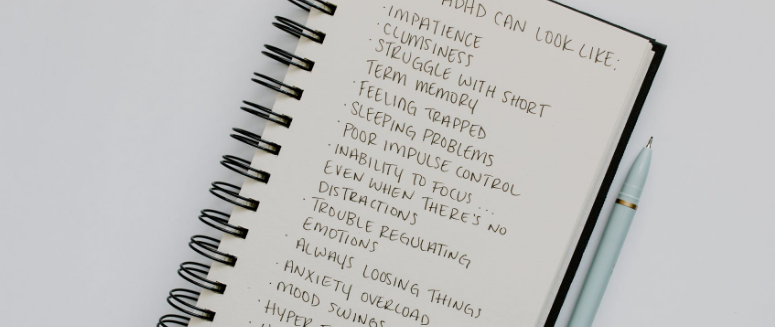 ADHD CAN LOOK LIKE:
· IMPATIENCE
· CLUMSINESS
· STRUGGLE WITH SHORT
TERM MEMORY
· FEELING TRAPPED
· SLEEPING PROBLEMS
· POOR IMPULSE CONTROL
· INABILITY TO FOCUS...
EVEN WHEN THERE'S NO
DISTRACTIONS
· TROUBLE REGULATING
EMOTIONS
· ALWAYS LOOSING THINGS
· ANXIETY OVERLOAD
· MOOD SWINGS
· HYPER